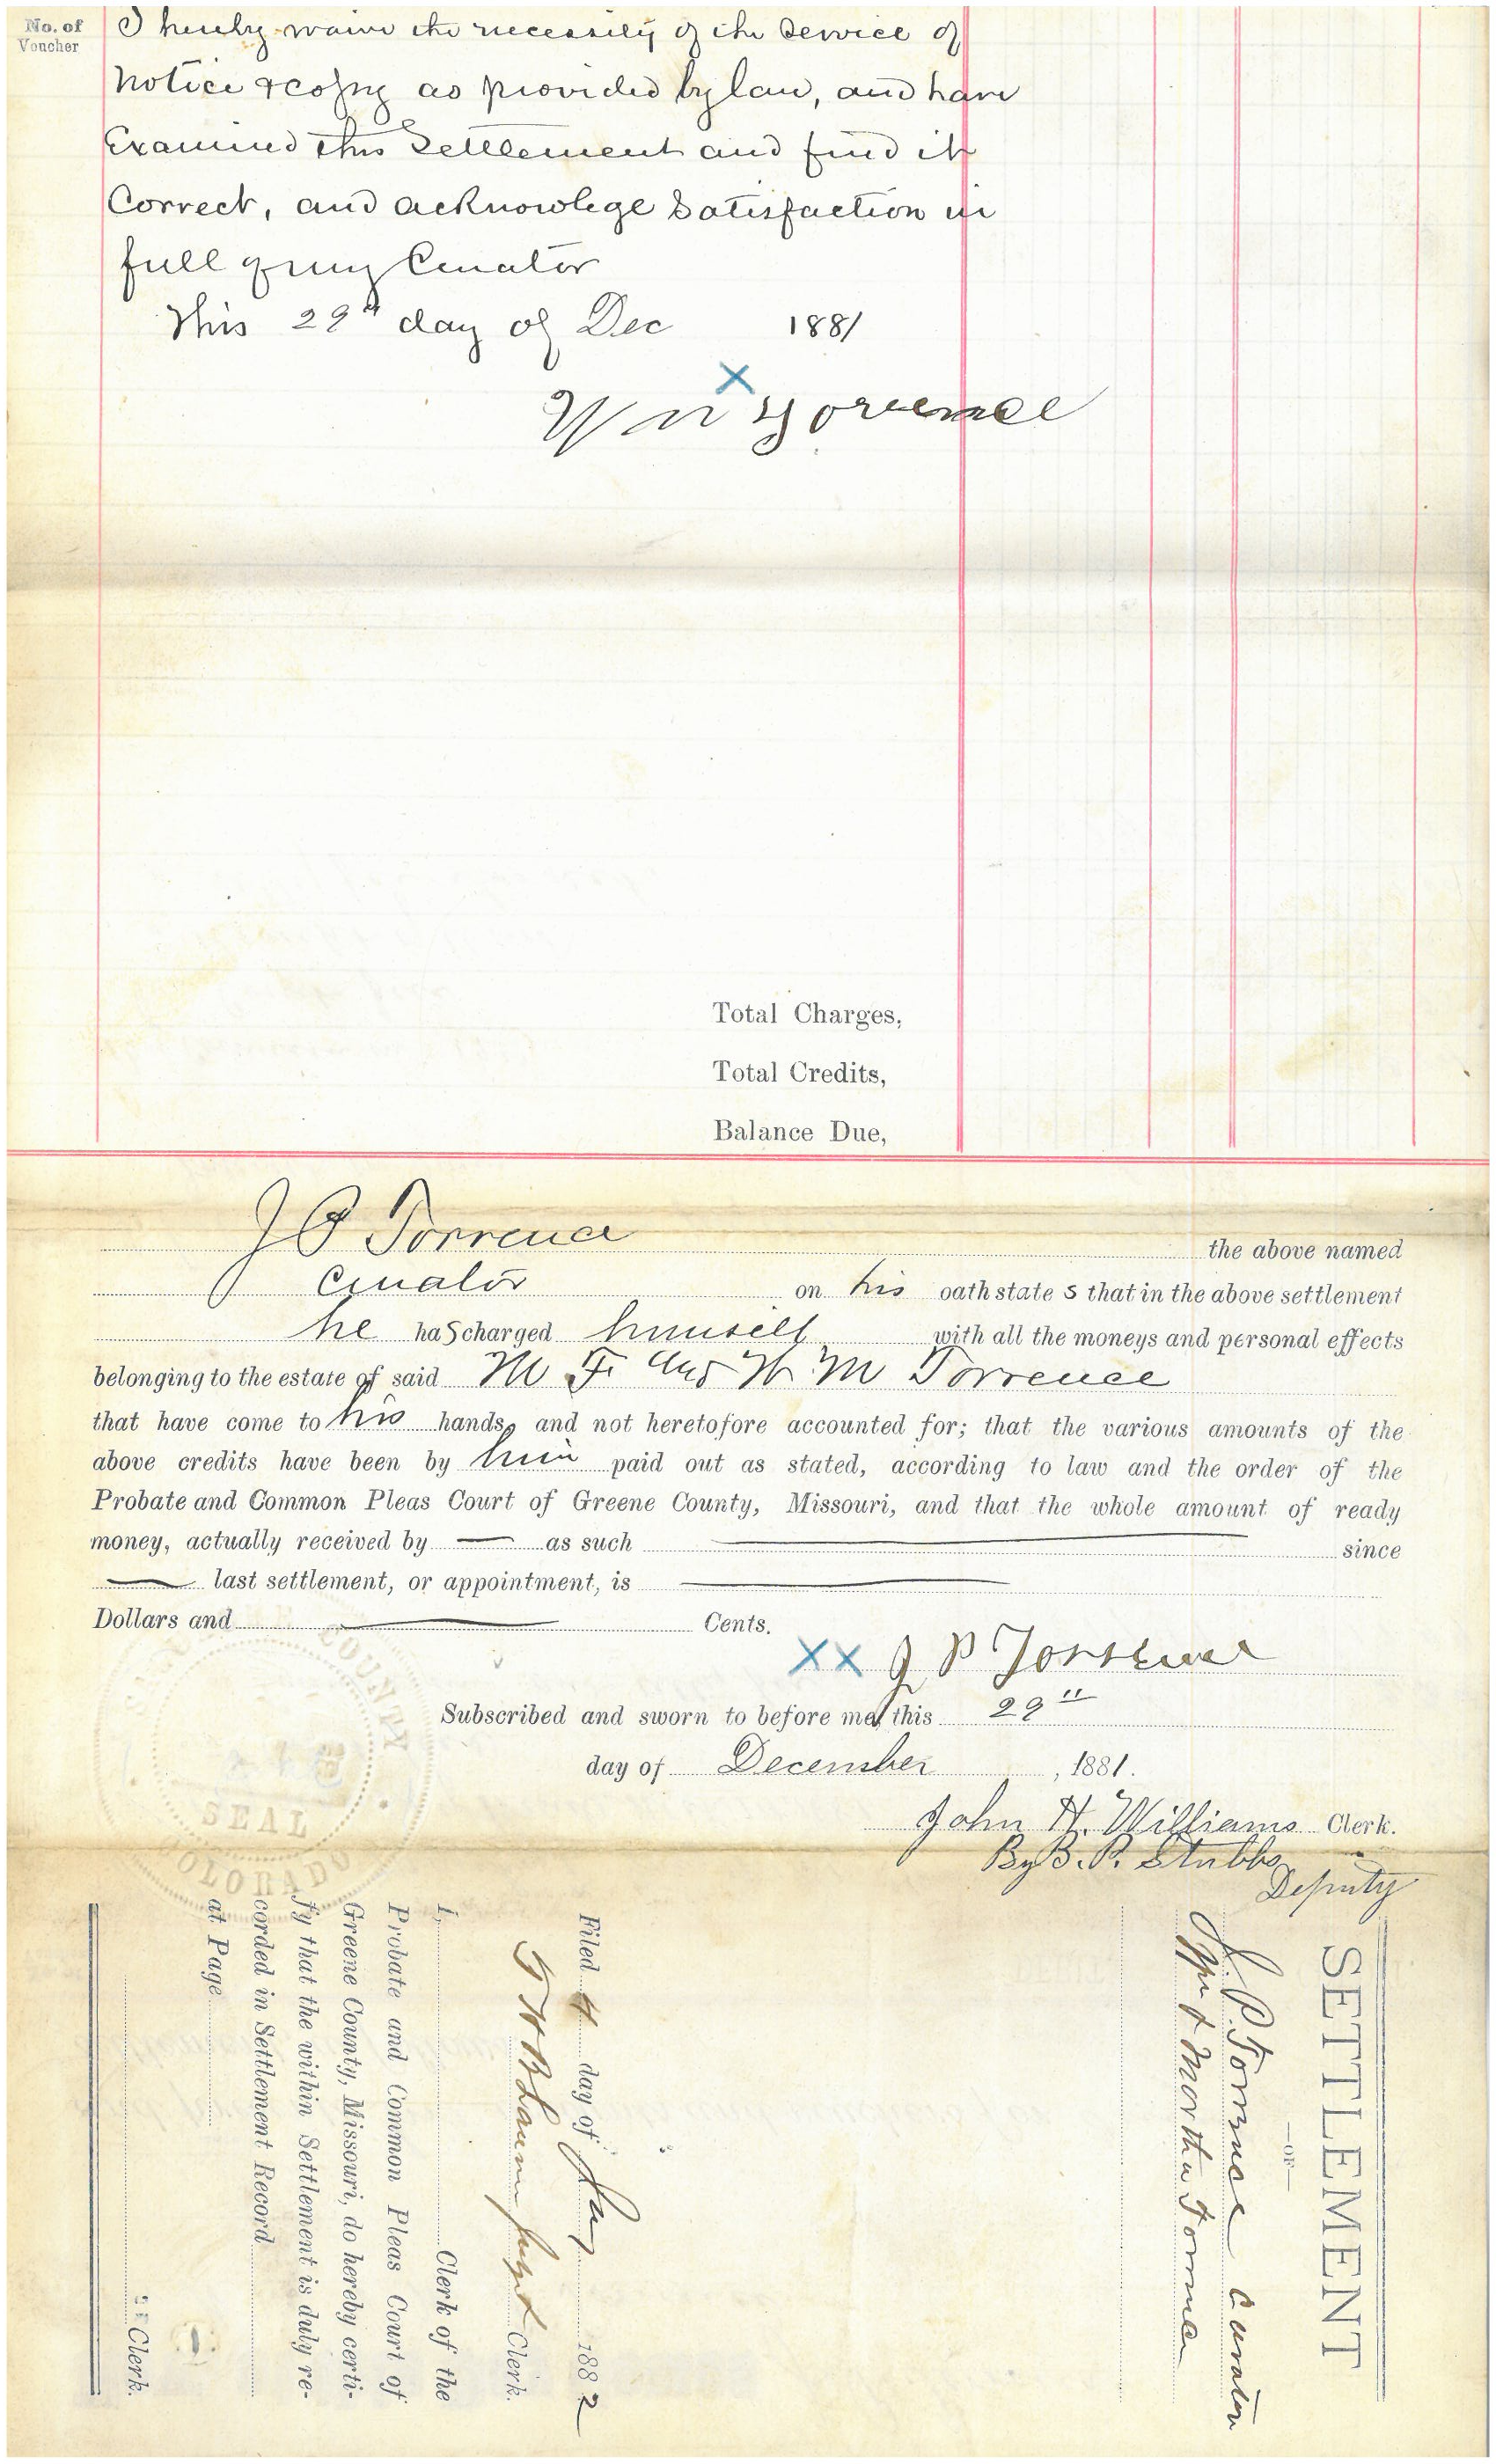 No. of
Voucher
I hereby waive the necessity of the Service of
Notice & copy as provided by law, and have
Examined this Settlement and find it
Correct, and acknowlege Satisfaction in
full of my Curator
This 29" day of Dec 1881
X
Wm Torrence
Total Charges,
Total Credits,
Balance Due,
J P Torrence the above named
Curator on his oath state s that in the above settlement
he has charged himself with all the moneys and personal effects
belonging to the estate of said M F and W M Torrence
that have come to his hands, and not heretofore accounted for; that the various amounts of the
above credits have been by him paid out as stated, according to law and the order of the
Probate and Common Pleas Court of Greene County, Missouri, and that the whole amount of ready
money, actually received by — as such — since
— last settlement, or appointment, is —
Dollars and — Cents.
XX J P Torrence
Subscribed and sworn to before me, this 29"
day of December, 1881.
John H. Williams Clerk.
By B. P. Stubbs
Deputy
COUNTY
SEAL
COLORADO
SETTLEMENT
—OF—
J. P. Torrence Curator
of Martha Torrence
Filed 4 day of Jany 1882
Judge Clerk.
I, Clerk of the
Probate and Common Pleas Court of
Greene County, Missouri, do hereby certi-
fy that the within Settlement is duly re-
corded in Settlement Record
at Page
Clerk.